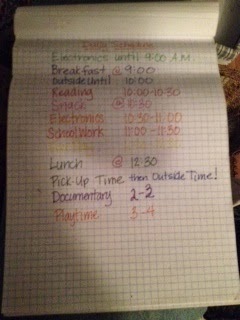 Daily Schedule
Electronics until 9:00 A.M.
Breakfast @ 9:00
Outside Until 10:00
Reading 10:00-10:30
Snack @ 10:30
Electronics 10:30-11:00
School Work 11:00-11:30
Lunch @ 12:30
Pick-Up Time then Outside Time!
Documentary 2-3
Playtime 3-4